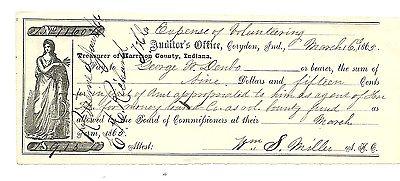 Expense of Volunteering
Auditor's Office, Corydon, Ind., March 6 1865
Treasurer of Harrison County, Indiana,
George W. Denbo or bearer, the sum of
Nine Dollars and fifteen Cents
for in part of Amt appropriated to him as agent of
for money vol. bounty fund
allowed by the Board of Commissioners at their March
Term, 1865.
$9.15 Attest: Wm S. Miller A. H. C.